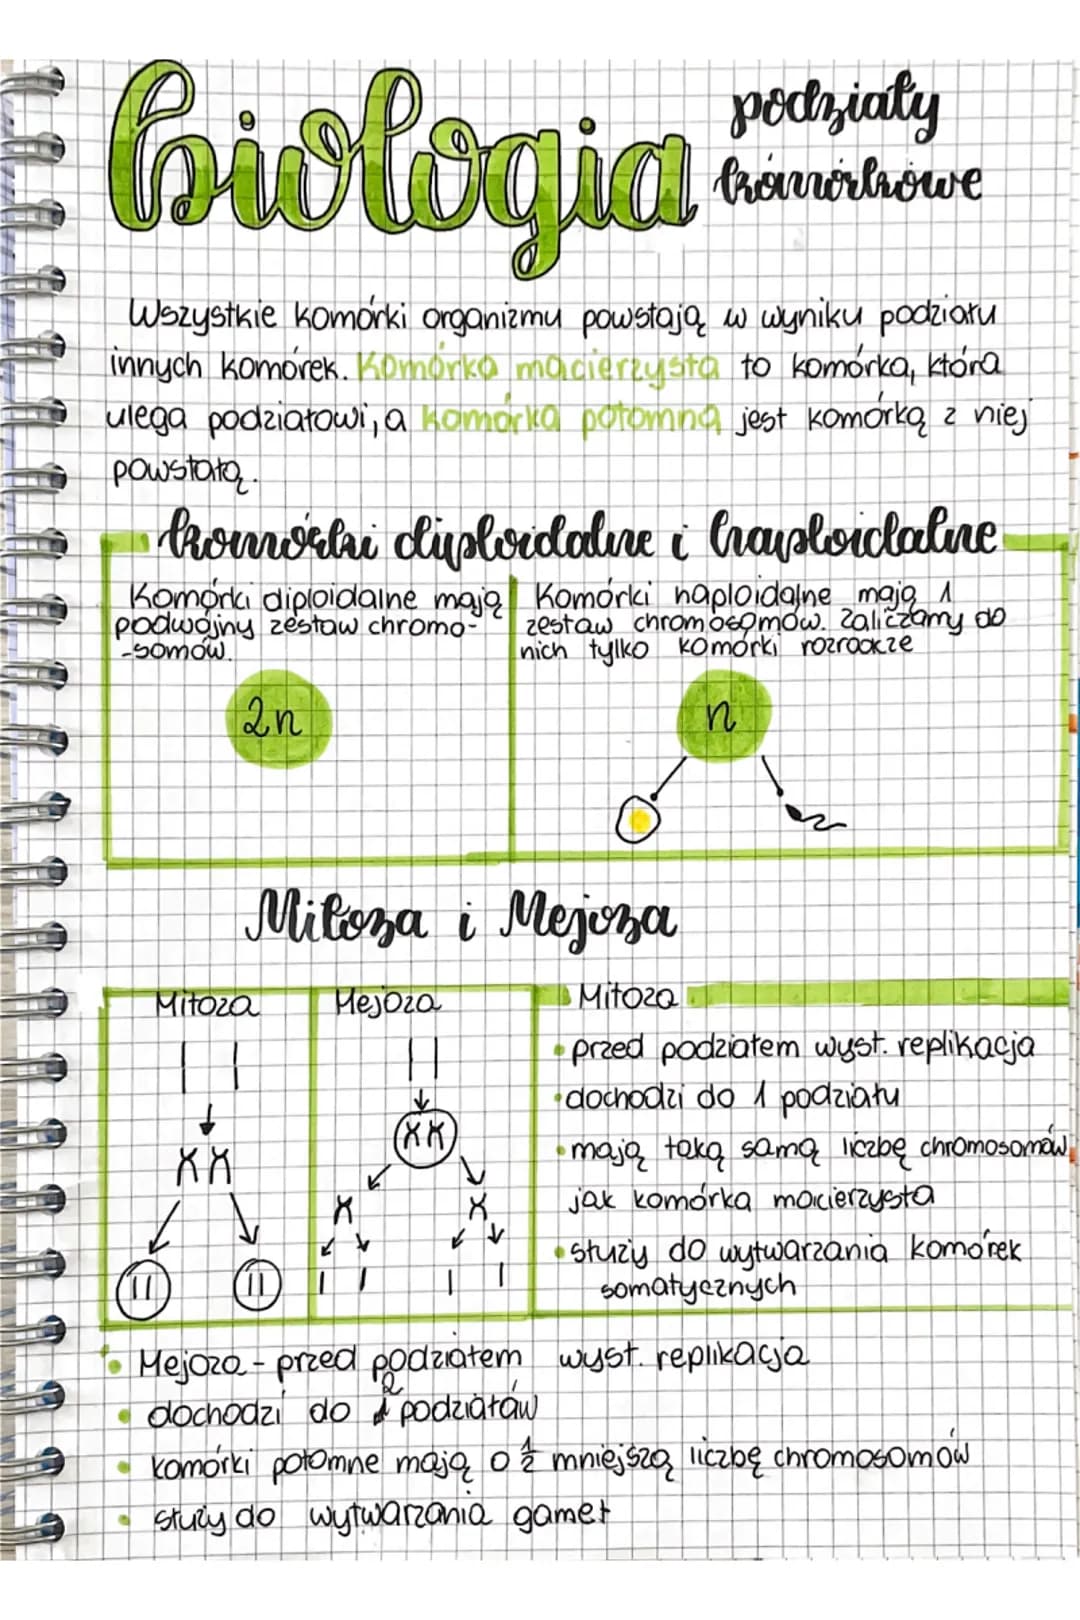 biologia
podziały
komórkowe
Wszystkie komórki organizmu powstają w wyniku podziału
innych komórek. Komórka macierzysta to komórka, która
ulega podziałowi, a komórka potomną jest komórką z niej
powstałą.
komórki diploidalne i haploidalne
Komórki diploidalne mają
podwójny zestaw chromo-
-somów.
Komórki haploidalne mają 1
zestaw chromosomów. Zaliczamy do
nich tylko komórki rozrodcze
2n
n
Mitoza i Mejoza
Mitoza
Mejoza
Mitoza
• przed podziałem wyst. replikacja
• dochodzi do 1 podziału
• mają taką samą liczbę chromosomów,
jak komórka macierzysta
• służy do wytwarzania komórek
somatycznych
• Mejoza - przed podziałem wyst. replikacja
• dochodzi do 2 podziałów
• komórki potomne mają o ½ mniejszą liczbę chromosomów
• służy do wytwarzania gamet